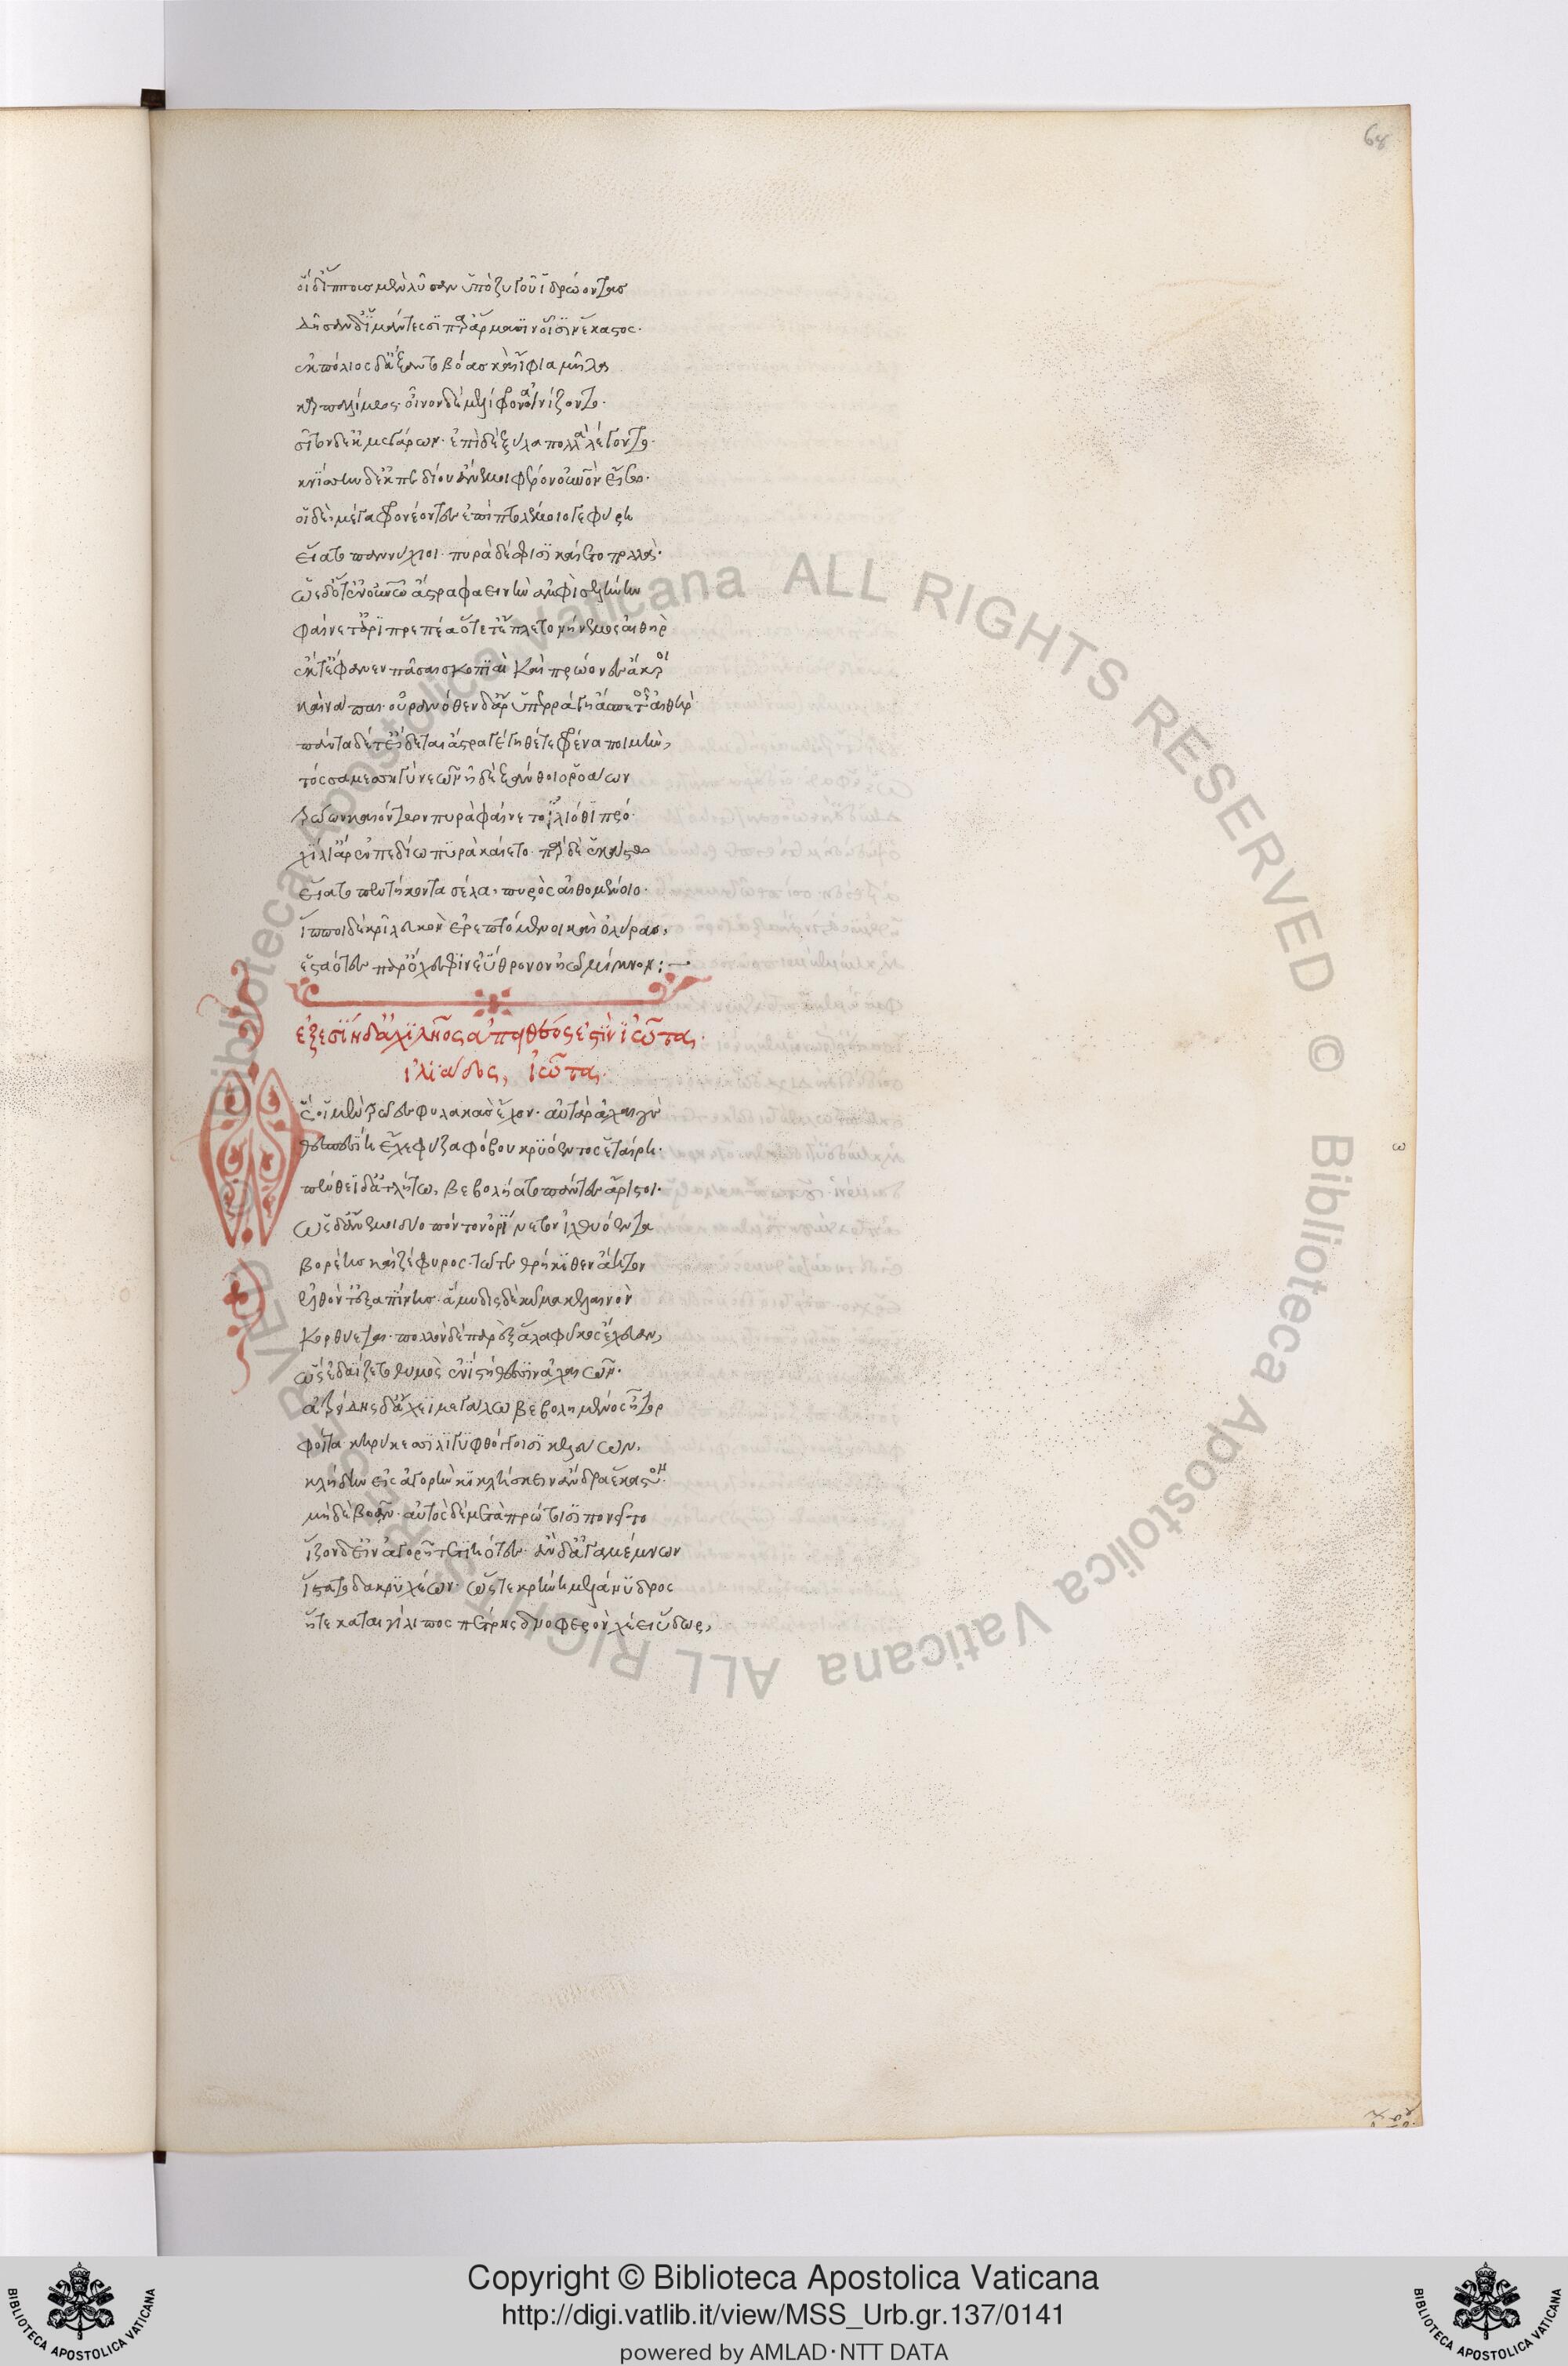 68
οἵ δ' ἵππους μὲν λῦσαν ὑπὸ ζυγοῦ ἱδρώοντας
δῆσαν δ' ἱμάντεσσι παρ' ἅρμασιν οἷσιν ἕκαστος·
ἐκ πόλιος δ' ἄξαντο βόας καὶ ἴφια μῆλα
οἶνον δὲ μελίφρονα οἰνίζοντο·
σῖτον δ' ἐκ μεγάρων· ἐπὶ δὲ ξύλα πολλὰ λέγοντο·
κνίσην δ' ἐκ πεδίου ἄνεμοι φέρον οὐρανὸν εἴσω·
οἱ δὲ μέγα φρονέοντες ἐπὶ πτολέμοιο γεφύρη
εἵατο παννύχιοι· πυρὰ δέ σφισι καίετο πολλά·
ὡς δ' ὅτ' ἐν οὐρανῷ ἄστρα φαεινὴν ἀμφὶ σελήνην
φαίνετ' ἀριπρεπέα ὅτε τ' ἔπλετο νήνεμος αἰθήρ
ἔκ τ' ἔφανεν πᾶσαι σκοπιαὶ καὶ πρώονες ἄκροι
καὶ νάπαι· οὐρανόθεν δ' ἄρ' ὑπερράγη ἄσπετος αἰθήρ
πάντα δέ τ' εἴδεται ἄστρα γέγηθε τε φρένα ποιμήν,
τόσσα μεσηγὺ νεῶν ἠδὲ ξάνθοιο ῥοάων
Τρώων καιόντων πυρὰ φαίνετο ἰλιόθι πρό·
χίλι' ἄρ' ἐν πεδίω πυρὰ καίετο· παρ δὲ ἑκάστω
εἵατο πεντήκοντα σέλα, πυρὸς αἰθομένοιο·
ἵπποι δὲ κρῖ λευκὸν ἐρεπτόμενοι καὶ ὀλύρας,
ἑσταότες παρ' ὄχεσφιν ἐΰθρονον ἠῶ μίμνον:—
ἐξεσίη δ' ἀχιλῆος ἀπειθέος ἐστὶν ἰῶτα,
ἰλιάδος, ἰῶτα·
ὣς οἱ μὲν τρῶες φυλακὰς ἔχον· αὐτὰρ ἀχαιοὺς
θεσπεσίη ἔχε φύζα φόβου κρυόεντος ἑταίρη·
πένθεϊ δ' ἀτλήτω, βεβολήατο πάντες ἄριστοι·
ὡς δ' ἄνεμοι δύο πόντον ὀρίνετον ἰχθυόεντα
βορέης καὶ ζέφυρος· τώτε θρήκιθεν ἄητον
ἐλθόντ' ἐξαπίνης· ἄμυδις δέ κῦμα κελαινὸν
κορθύεται· πολλὸν δὲ παρὲξ ἅλα φῦκος ἔχευαν,
ὣς ἐδαΐζετο θυμὸς ἐνὶ στήθεσσιν ἀχαιῶν·
ἀτρείδης δ' ἄχεϊ μεγάλω βεβολημένος ἦτορ
φοίτα κηρύκεσσι λιγυφθόγγοισι κελεύων,
κλήδην εἰς ἀγορὴν κικλήσκειν ἄνδρα ἕκαστον·
μηδὲ βοᾶν· αὐτὸς δὲ μετὰ πρώτοισι πονεῖτο
ἷζον δ' εἰν ἀγορῇ τετιηότες· ἂν δ' ἀγαμέμνων
ἵστατο δακρυχέων· ὥστε κρήνη μελάνυδρος
ἥτε κατ' αἰγίλιπος πέτρης δνοφερὸν χέει ὕδωρ,
Copyright © Biblioteca Apostolica Vaticana
http://digi.vatlib.it/view/MSS_Urb.gr.137/0141
powered by AMLAD·NTT DATA